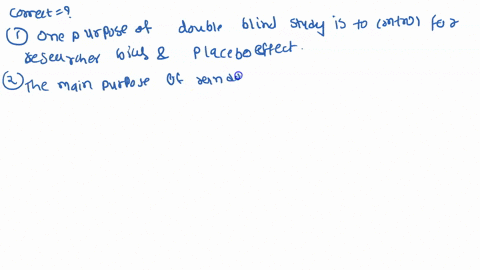 correct = ?
① One purpose of double blind study is to control for
researcher bias & placebo effect.
② The main purpose of